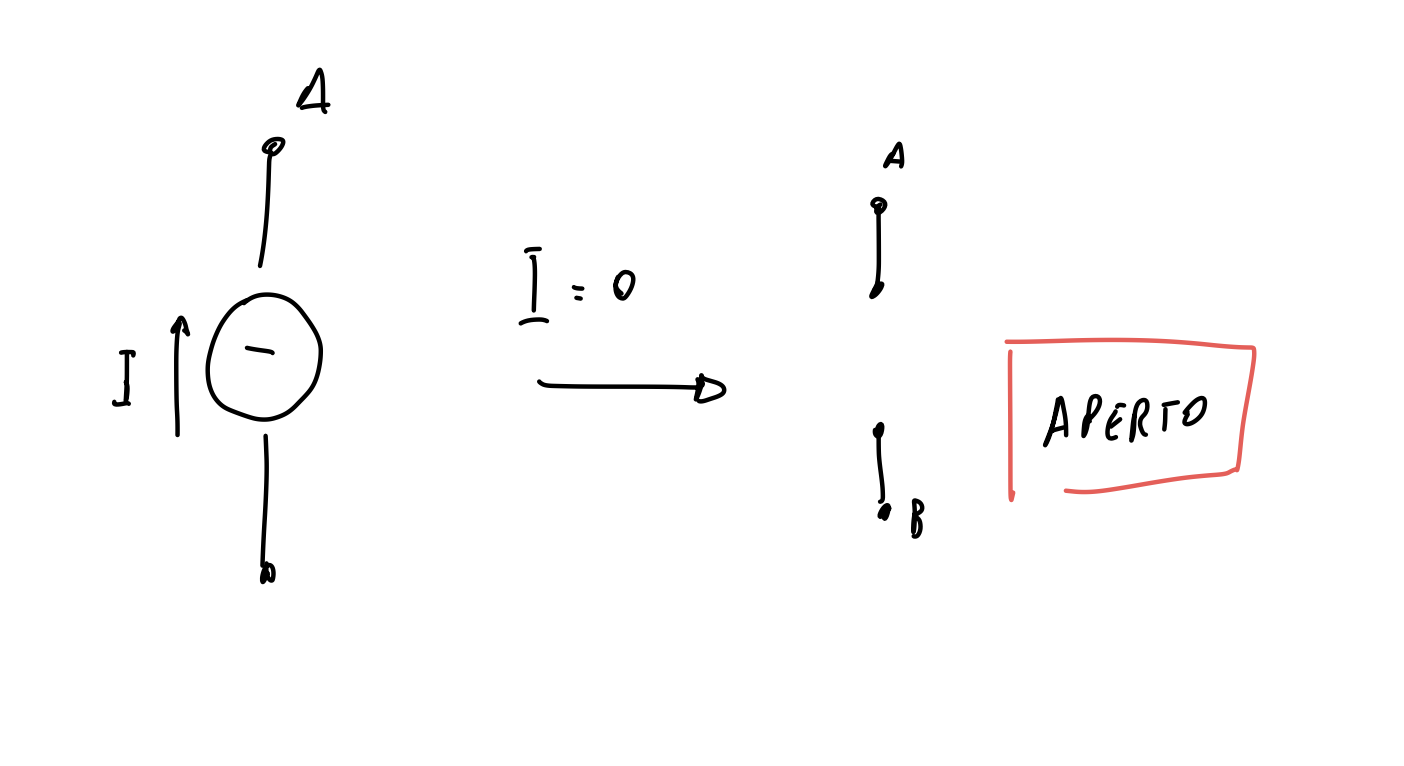 A
I
I = 0
A
B
APERTO